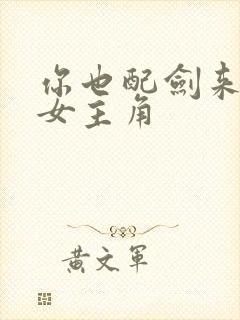 你也配劍来
女主角
黄文軍